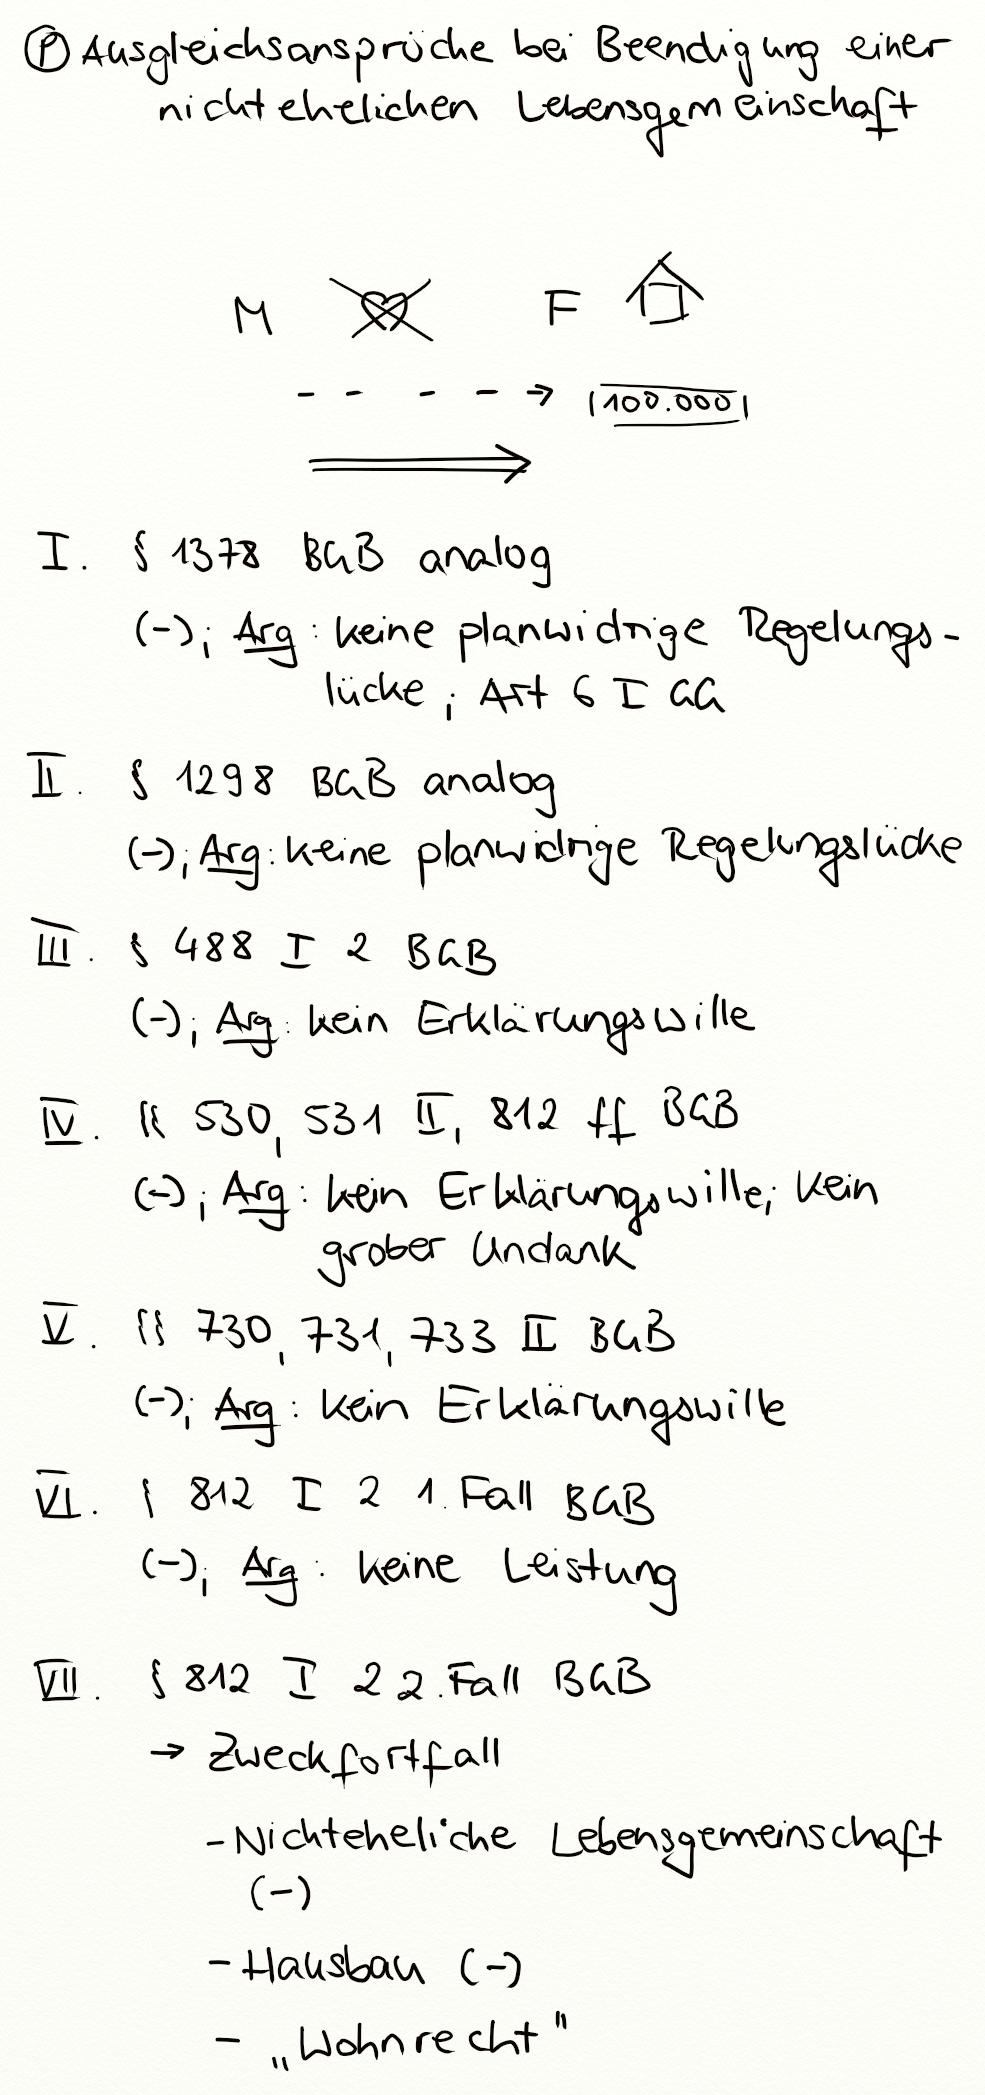 Ⓟ Ausgleichsansprüche bei Beendigung einer
nichtehelichen Lebensgemeinschaft
M F
100.000
I. § 1378 BGB analog
(-); Arg: keine planwidrige Regelungs-
lücke; Art 6 I GG
II. § 1298 BGB analog
(-); Arg: keine planwidrige Regelungslücke
III. § 488 I 2 BGB
(-); Arg: kein Erklärungswille
IV. §§ 530, 531 II, 812 ff BGB
(-); Arg: kein Erklärungswille; kein
grober Undank
V. §§ 730, 731, 733 II BGB
(-); Arg: kein Erklärungswille
VI. § 812 I 2 1. Fall BGB
(-); Arg: keine Leistung
VII. § 812 I 2 2. Fall BGB
→ Zweckfortfall
- Nichteheliche Lebensgemeinschaft
(-)
- Hausbau (-)
- „Wohnrecht"